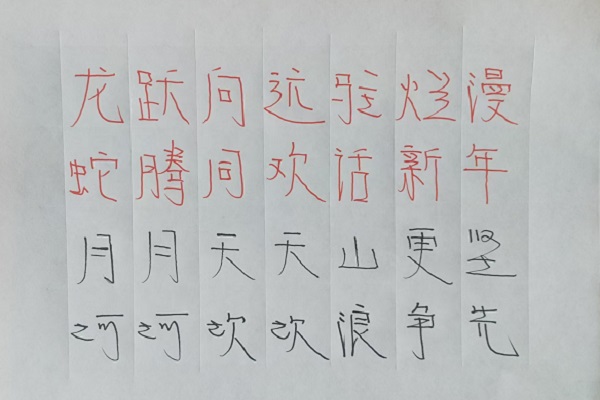 龙跃向远驻烂漫
蛇腾同欢话新年
月月天天山更坚
河河次次浪争先